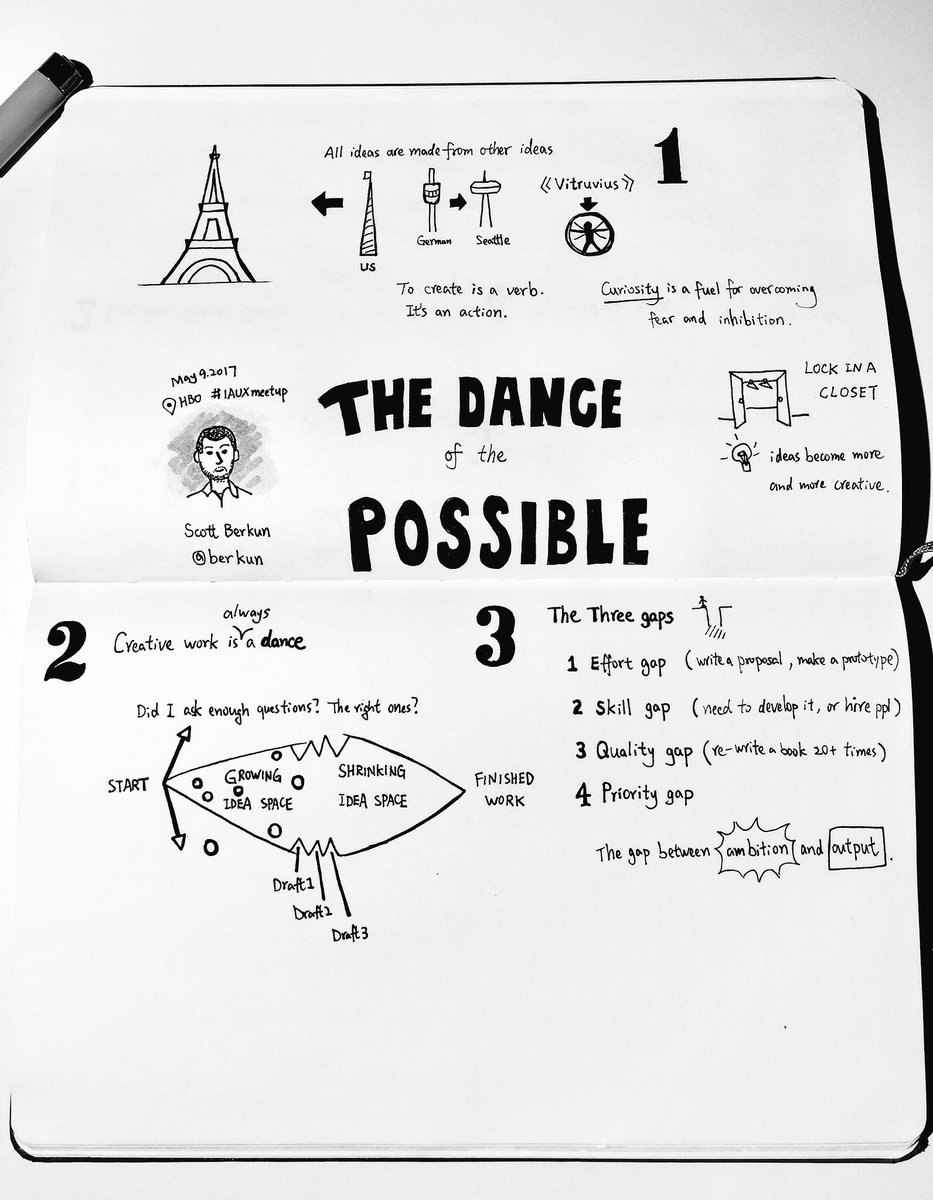 1
All ideas are made from other ideas
US
German
Seattle
《Vitruvius》
To create is a verb.
It's an action.
Curiosity is a fuel for overcoming
fear and inhibition.
May 9.2017
HBO #IAUXmeetup
Scott Berkun
@berkun
THE DANCE
of the
POSSIBLE
LOCK IN A
CLOSET
ideas become more
and more creative.
2
always
Creative work is a dance
Did I ask enough questions? The right ones?
START
GROWING
IDEA SPACE
SHRINKING
IDEA SPACE
FINISHED
WORK
Draft1
Draft2
Draft3
3
The Three gaps
1 Effort gap (write a proposal, make a prototype)
2 Skill gap (need to develop it, or hire ppl)
3 Quality gap (re-write a book 20+ times)
4 Priority gap
The gap between ambition and output.